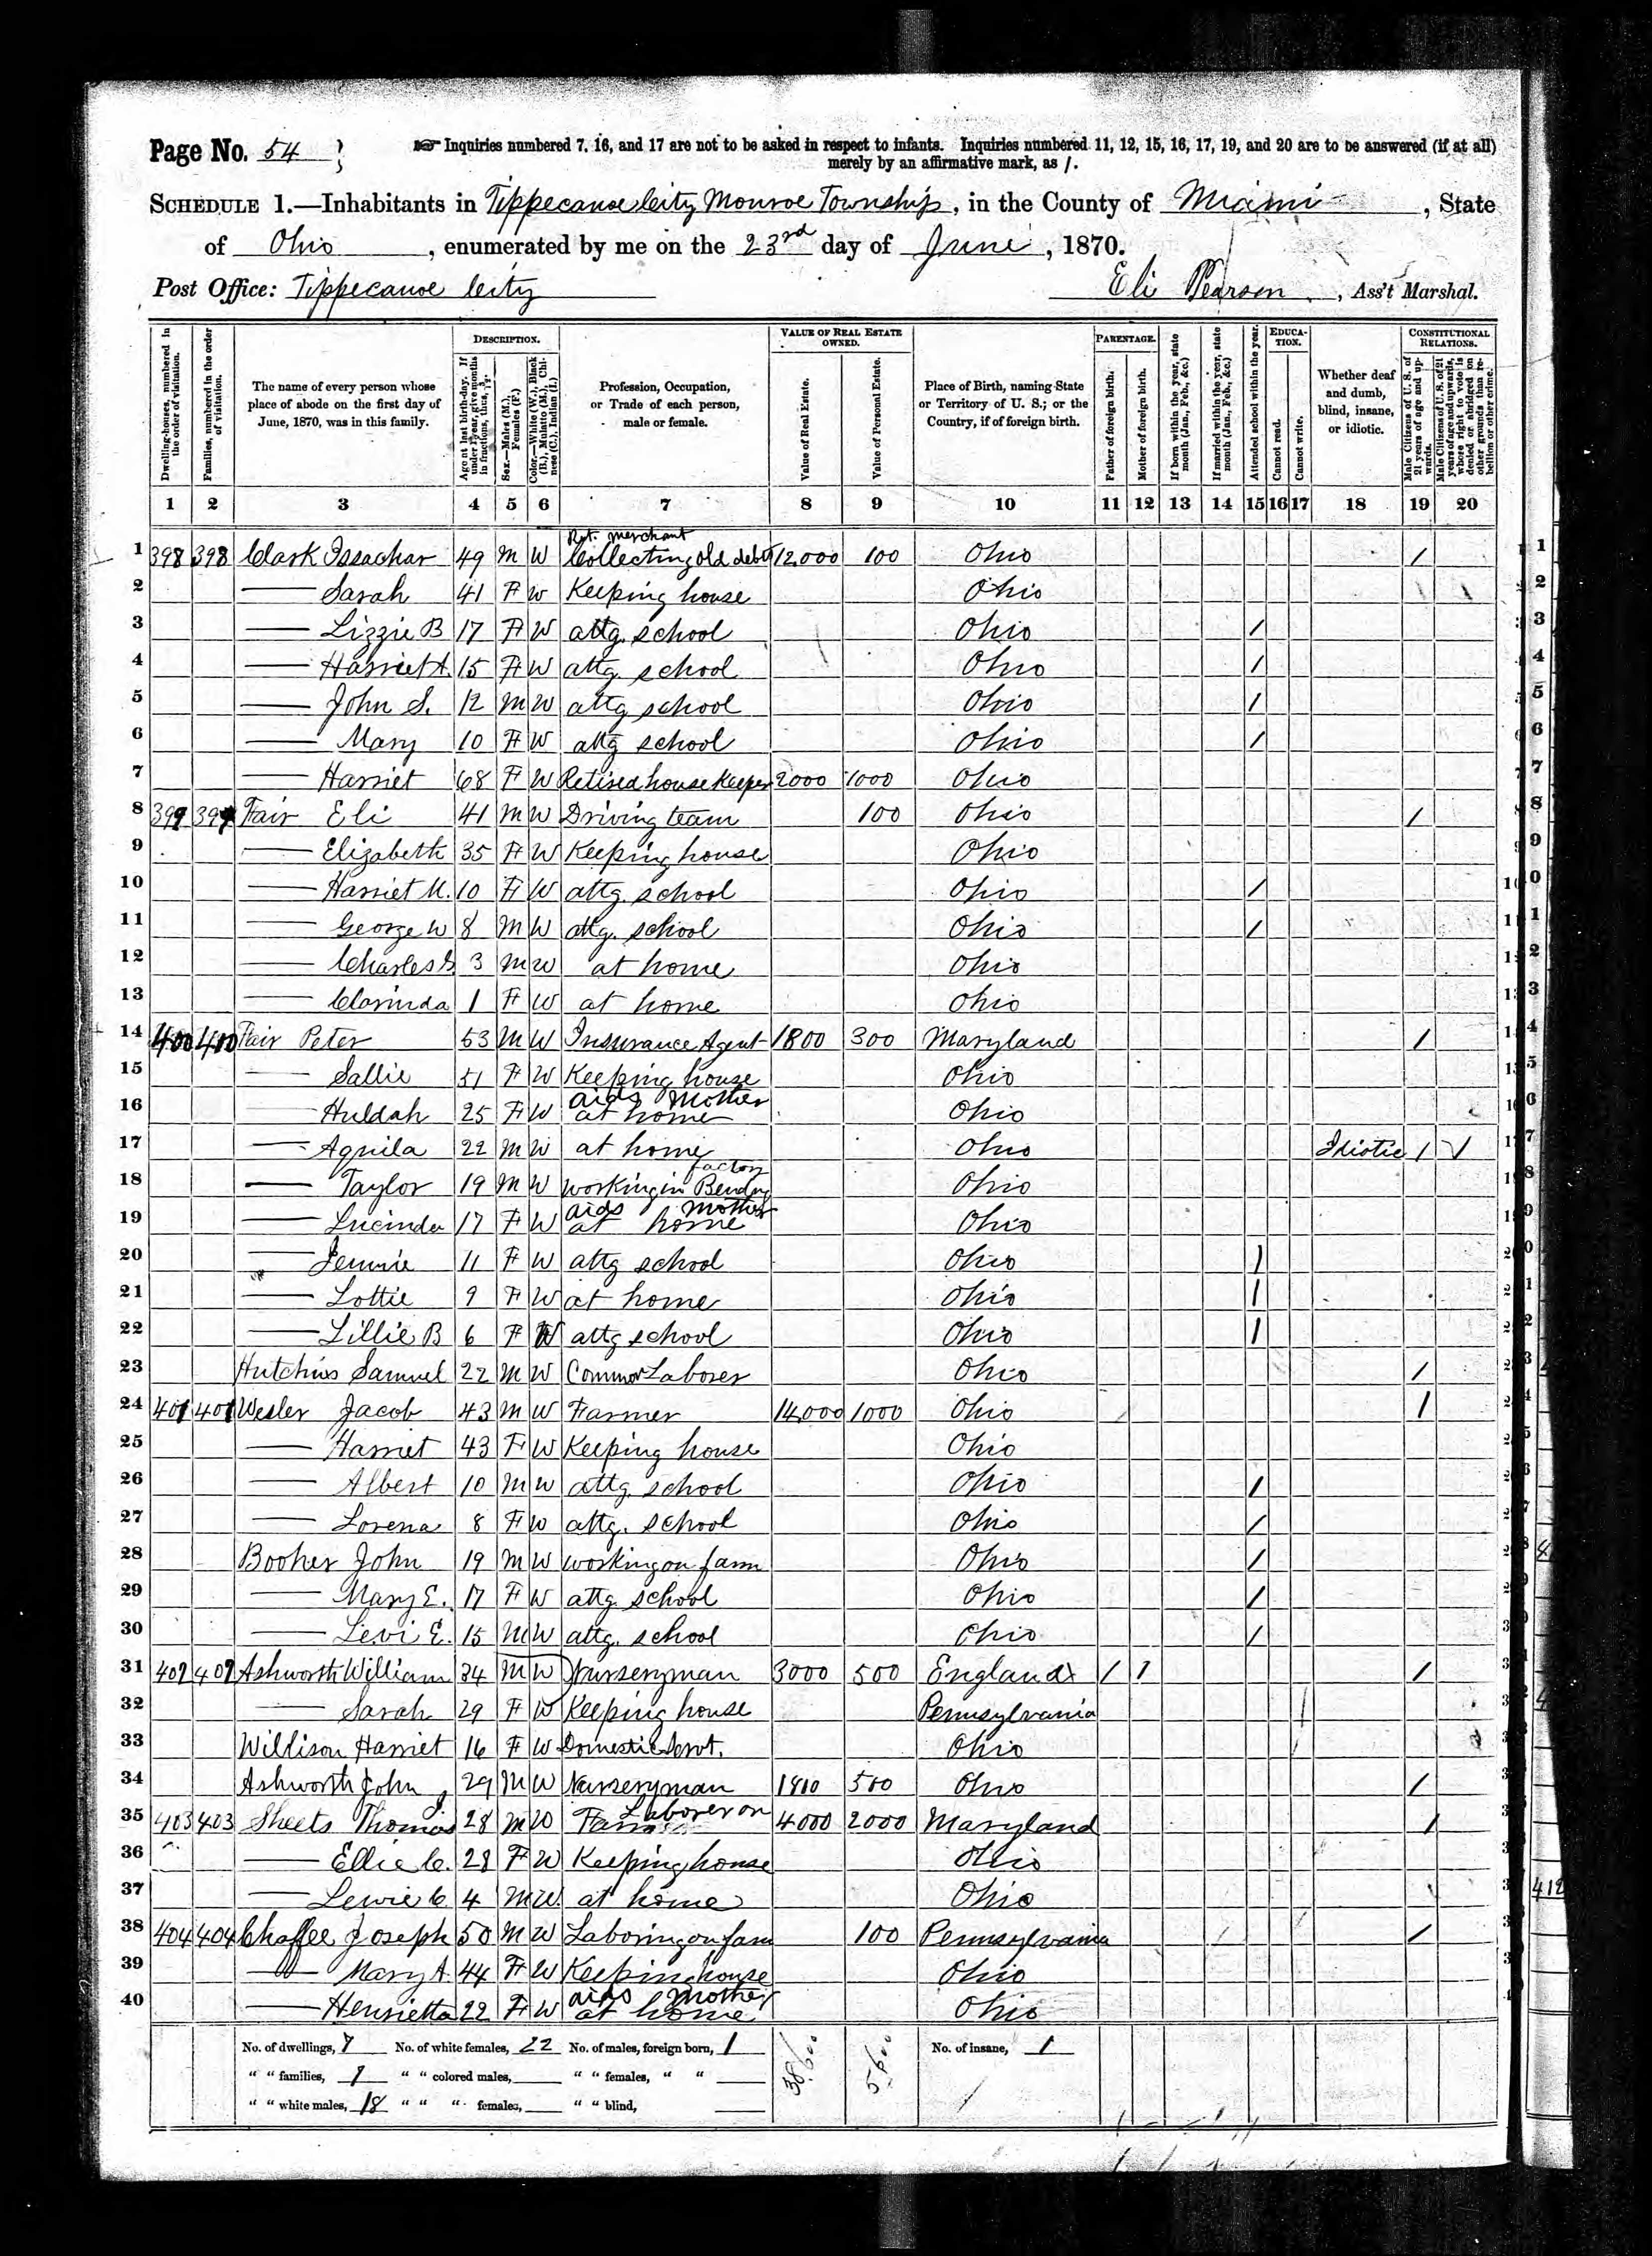 Page No. 54
Inquiries numbered 7, 16, and 17 are not to be asked in respect to infants. Inquiries numbered 11, 12, 15, 16, 17, 19, and 20 are to be answered (if at all)
merely by an affirmative mark, as /.
SCHEDULE 1.—Inhabitants in Tippecanoe City Monroe Township, in the County of Miami, State
of Ohio, enumerated by me on the 23rd day of June, 1870.
Post Office: Tippecanoe City Eli Pearson, Ass't Marshal.
Dwelling-houses, numbered in the order of visitation.
Families, numbered in the order of visitation.
The name of every person whose place of abode on the first day of June, 1870, was in this family.
DESCRIPTION.
Age at last birth-day. If under 1 year, give months in fractions, thus, 3/12.
Sex.—Males (M.), Females (F.)
Color.—White (W.), Black (B.), Mulatto (M.), Chinese (C.), Indian (I.)
Profession, Occupation, or Trade of each person, male or female.
VALUE OF REAL ESTATE OWNED.
Value of Real Estate.
Value of Personal Estate.
Place of Birth, naming State or Territory of U. S.; or the Country, if of foreign birth.
PARENTAGE.
Father of foreign birth.
Mother of foreign birth.
If born within the year, state month (Jan., Feb., &c.)
If married within the year, state month (Jan., Feb., &c.)
Attended school within the year.
EDUCATION.
Cannot read.
Cannot write.
Whether deaf and dumb, blind, insane, or idiotic.
CONSTITUTIONAL RELATIONS.
Male Citizens of U. S. of 21 years of age and upwards.
Male Citizens of U. S. of 21 years of age and upwards, whose right to vote is denied or abridged on other grounds than rebellion or other crime.
1 2 3 4 5 6 7 8 9 10 11 12 13 14 15 16 17 18 19 20
Ret. merchant
1 398 398 Clark Issachar 49 M W Collecting old debts 12,000 100 Ohio / 1
2 — Sarah 41 F W Keeping house Ohio 2
3 — Lizzie B 17 F W attg. school Ohio / 3
4 — Harriet A. 15 F W attg. school Ohio / 4
5 — John S. 12 M W attg school Ohio / 5
6 — Mary 10 F W attg school Ohio / 6
7 — Harriet 68 F W Retired house Keeper 2000 1000 Ohio 7
8 399 399 Fair Eli 41 M W Driving team 100 Ohio / 8
9 — Elizabeth 35 F W Keeping house Ohio 9
10 — Harriet M. 10 F W attg. school Ohio / 10
11 — George W 8 M W attg. school Ohio / 11
12 — Charles G 3 M W at home Ohio 12
13 — Clarinda 1 F W at home Ohio 13
14 400 400 Fair Peter 53 M W Insurance Agent 1800 300 Maryland / 14
15 — Sallie 51 F W Keeping house Ohio 15
aids Mother
16 — Huldah 25 F W at home Ohio 16
17 — Aquila 22 M W at home Ohio Idiotic / √ 17
factory
18 — Taylor 19 M W working in Bending Ohio 18
aids Mother
19 — Lucinda 17 F W at home Ohio 19
20 — Jennie 11 F W attg school Ohio / 20
21 — Lottie 9 F W at home Ohio / 21
22 — Lillie B 6 F W attg school Ohio / 22
23 Hutchins Samuel 22 M W Common Laborer Ohio / 23
24 401 401 Wesler Jacob 43 M W Farmer 14,000 1000 Ohio / 24
25 — Harriet 43 F W Keeping house Ohio 25
26 — Albert 10 M W attg. school Ohio / 26
27 — Lorena 8 F W attg. school Ohio / 27
28 Booher John 19 M W working on farm Ohio / 28
29 — Mary E. 17 F W attg. school Ohio / 29
30 — Levi E. 15 M W attg. school Ohio / 30
31 402 402 Ashworth William 34 M W Nurseryman 3000 500 England / / / 31
32 — Sarah 29 F W Keeping house Pennsylvania / 32
33 Willison Harriet 16 F W Domestic Servt. Ohio 33
34 Ashworth John 29 M W Nurseryman 1800 500 Ohio / 34
Laborer on
35 403 403 Sheets Thomas J. 28 M W Farm 4000 2000 Maryland / 35
36 — Ellie C. 28 F W Keeping house Ohio 36
37 — Lewie C 4 M W. at home Ohio 37
38 404 404 Chaffee Joseph 50 M W Laboring on farm 100 Pennsylvania / 38
39 — Mary A. 44 F W Keeping house Ohio 39
aids Mother
40 — Henrietta 22 F W at home Ohio
No. of dwellings, 7 No. of white females, 22 No. of males, foreign born, 1 38,600 5,600 No. of insane, 1
" " families, 7 " " colored males, " " females, " "
" " white males, 18 " " " females, " " blind,
412